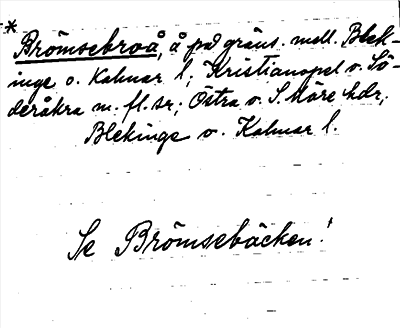 * Brömsebroå, å på gräns. mell. Blek-
inge o. Kalmar l; Kristianopel o. Sö-
deråkra m. fl. sr; Östra o. S. Möre hdr;
Blekinge o. Kalmar l.
Se Brömsebäcken!